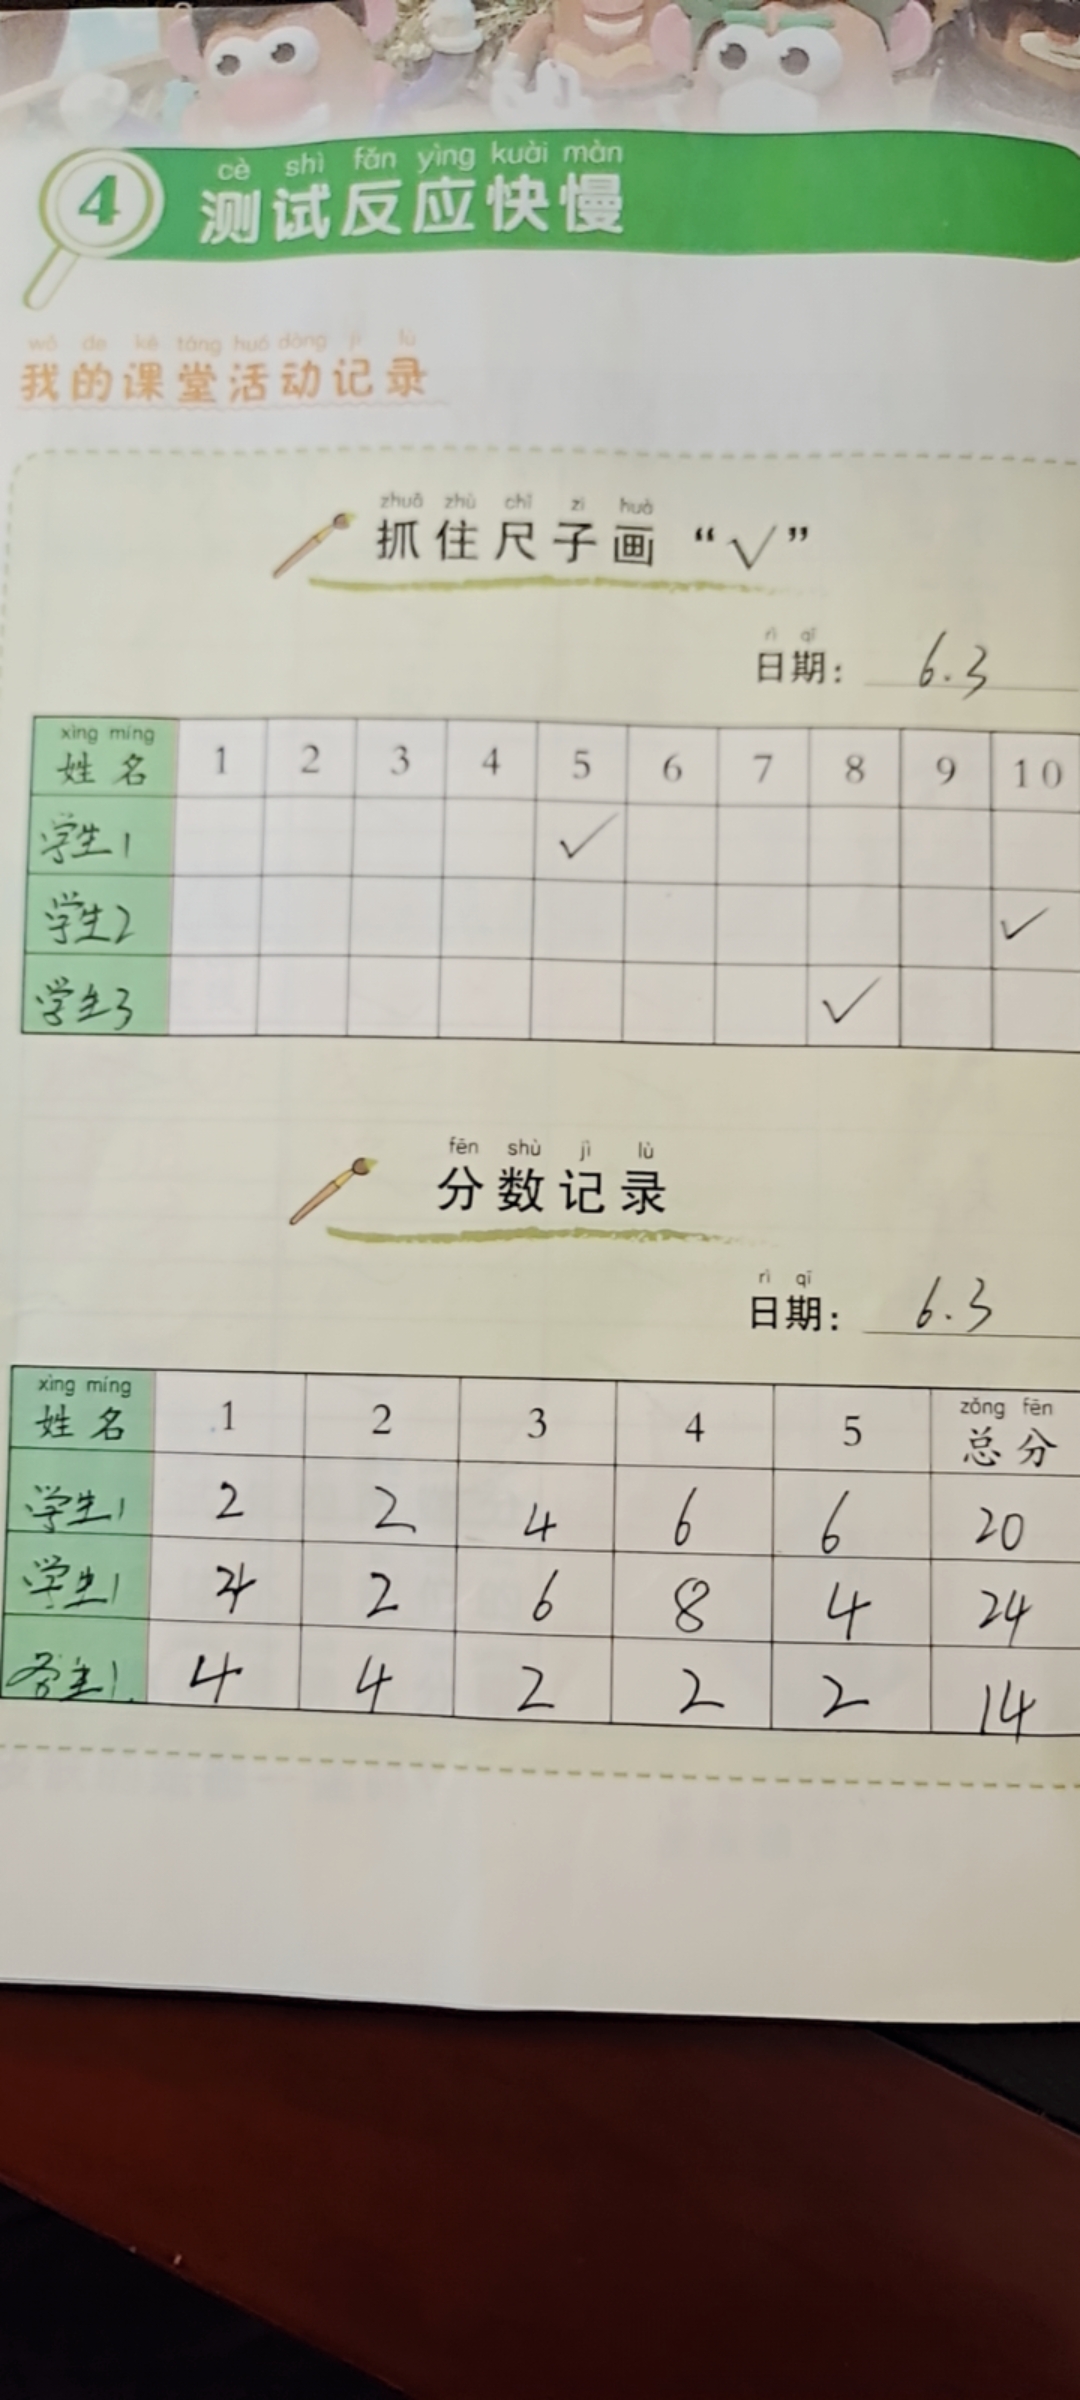 cè shì fǎn yìng kuài màn
4 测试反应快慢
wǒ de kè táng huó dòng jì lù
我的课堂活动记录
zhuā zhù chǐ zi huà
抓住尺子画“√”
rì qī
日期： 6.3
xìng míng
姓名 1 2 3 4 5 6 7 8 9 10
学生1 ✓
学生2 ✓
学生3 ✓
fēn shù jì lù
分数记录
rì qī
日期： 6.3
xìng míng zǒng fēn
姓名 1 2 3 4 5 总分
学生1 2 2 4 6 6 20
学生1 4 2 6 8 4 24
生1 4 4 2 2 2 14